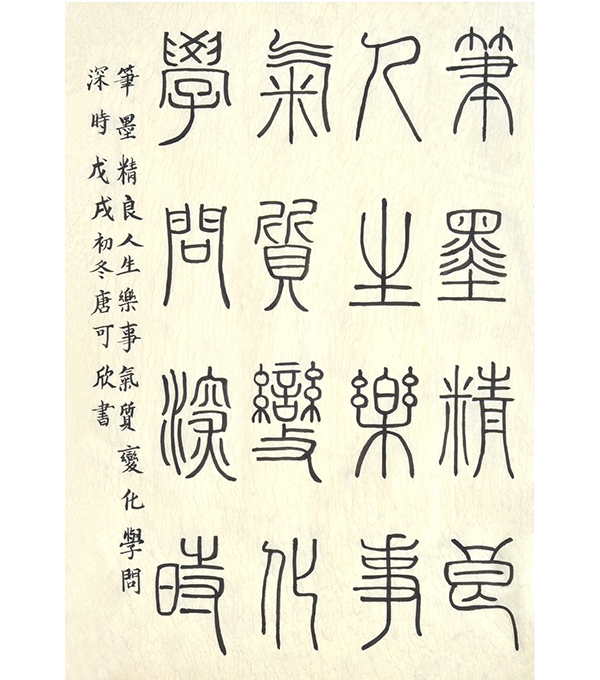 筆墨精良
人生樂事
氣質變化
學問深時
筆墨精良人生樂事氣質變化學問
深時戊戌初冬唐可欣書